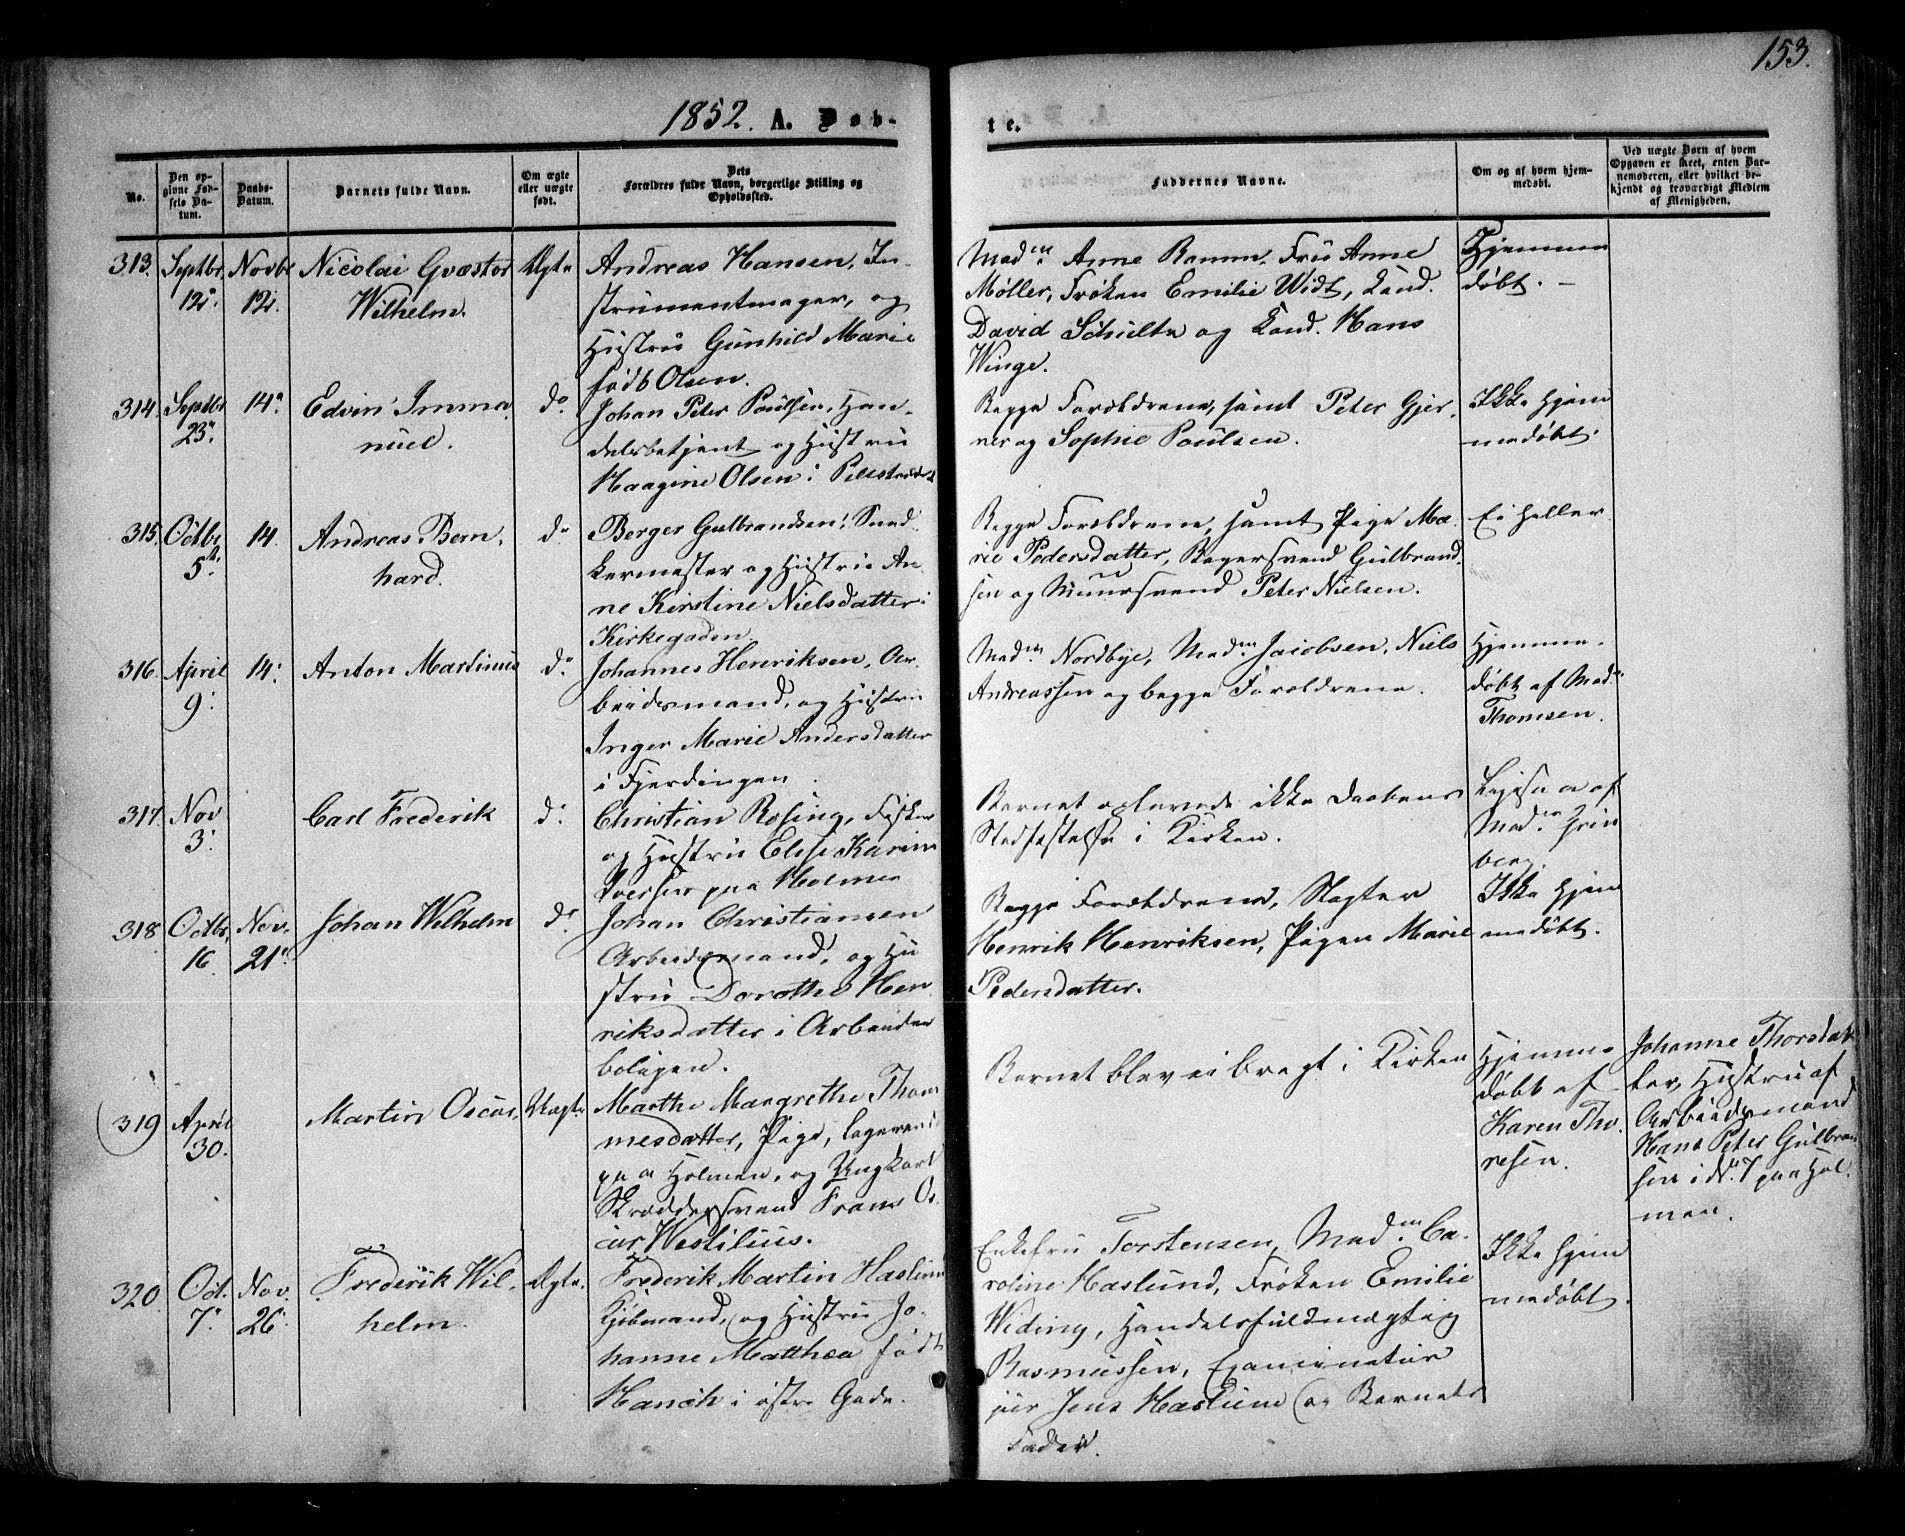 153.
1852. A. Døb-
te.
No.
Den op-
givne Fød-
sels Da-
tum.
Daabs-
Datum.
Barnets fulde Navn.
Om ægte
eller uægte
født.
Dets
Forældres fulde Navn, borgerlige Stilling og
Opholdssted.
Faddernes Navne.
Om og af hvem hjem-
medøbt.
Ved uægte Børn af hvem
Opgaven er skeet, enten Bar-
nemoderen, eller hvilket be-
kjendt og troværdigt Medlem
af Menigheden.
313. Septbr 12. Novbr 12. Nicolai Qvæstor
Wilhelm.
Ægte
Andreas Hansen, In-
strumentmager, og
Hustru Gunhild Marie
født Olsen.
Madm. Anne Ramm, Fru Anne
Møller, Frøken Emilie Widt, Cand.
David Schultz og Cand. Hans
Winge.
Hjemme
døbt. -
314. Septbr 23. 14. Edvin Imma
nuel.
do
Johan Peter Poulsen, Han-
delsbetjent og Hustru
Haagine Olsen i Pilestrædet
Begge Forældrene, samt Peter Gjer-
nes og Sophie Poulsen.
Ikke hjem
medøbt.
315. Octbr 5. 14. Andreas Bern-
hard.
do
Berger Gulbrandsen, Sned-
kermester og Hustru An-
ne Kirstine Nielsdatter i
Kirkegaden.
Begge Forældrene, samt Pige Ma-
rie Pedersdatter, Bagersvend Gulbrand-
sen og Muursvend Peter Nielsen.
Ei heller
316. April 9. 14. Anton Martinus
do
Johannes Henriksen, Ar-
beidsmand, og Hustru
Inger Marie Andersdatter
i Fjerdingen.
Madm. Nordbye, Madm. Jacobsen, Niels
Andreassen og begge Forældrene.
Hjemme-
døbt af Madm.
Thomsen.
317. Nov 3. Carl Frederik
do
Christian Rosing, Fisker
og Hustru Elise Karine
Iversen paa Holmen
Barnet oplevede ikke Daabens
Stadfæstelse i Kirken.
af
Madm. Grin
berg.
318. Octbr. 16. Nov. 21. Johan Wilhelm
do
Johan Christiansen
Arbeidsmand, og Hu
stru Dorothe Hen
riksdatter i Arbeider
boligen.
Begge Forældrene, Slagter
Henrik Henriksen, Pigen Marie
Pedersdatter.
Ikke hjem
medøbt.
319 April 30. Martin Oscar,
Uægte
Marthe Margrethe Thom
mesdatter, Pige, logerende
paa Holmen, og Ungkarl
Skræddersvend Frans Os
car Westilius.
Barnet blev ei bragt i Kirken
Hjemme
døbt af
Karen Tho-
resen.
Johanne Thorsdat
ter, Hustru af
Arbeidsmand
Hans Peter Gulbran
sen i No 7 paa Hol
men.
320. Oct. 7. Nov. 26. Frederik Wil-
helm.
Ægte.
Frederik Martin Haslund
Kjøbmand, og Hustru Jo-
hanne Matthea født
Hanch i østre Gade.
Enkefru Torstensen, Madm. Ca-
roline Haslund, Frøken Emilie
Widing, Handelsfuldmægtig
Rasmussen, Examinatus
jur Jens Haslund og Barnets
Fader.
Ikke hjem
medøbt.